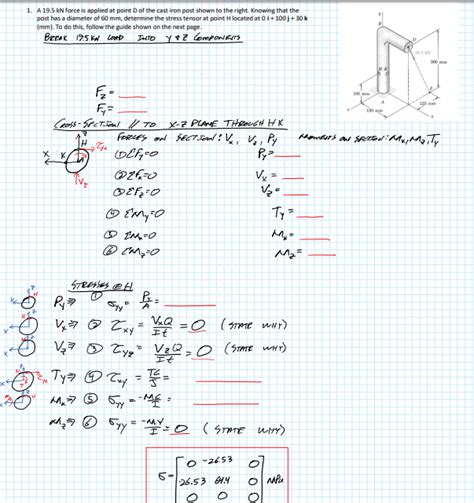 1. A 19.5 kN force is applied at point D of the cast iron post shown to the right. Knowing that the
post has a diameter of 60 mm, determine the stress tensor at point H located at 0 i + 100 j + 30 k
(mm). To do this, follow the guide shown on the next page.
BREAK 19.5 kN LOAD INTO Y & Z COMPONENTS
Fz =
Fy =
CROSS-SECTION // TO X-Z PLANE THROUGH HK
FORCES ON SECTION: Vx, Vz, Py MOMENTS ON SECTION: Mx, Mz, Ty
① ΣFy=0 Py=
② ΣFx=0 Vx =
③ ΣFz=0 Vz =
④ ΣMy=0 Ty =
⑤ ΣMx=0 Mx =
⑥ ΣMz=0 Mz =
STRESSES @ H
Py ⇒ ① σyy = Py/A =
Vx ⇒ ② τxy = VxQ/It = 0 (STATE WHY)
Vz ⇒ ③ τyz = VzQ/It = 0 (STATE WHY)
Ty ⇒ ④ τxy = Tc/J =
Mx ⇒ ⑤ σyy = -Mc/I =
Mz ⇒ ⑥ σyy = -My/I = 0 (STATE WHY)
0 -26.53 0
σ = 26.53 0 MPa
0 0 0
B
D
300 mm
H K
100 mm
A
125 mm
150 mm
x
z